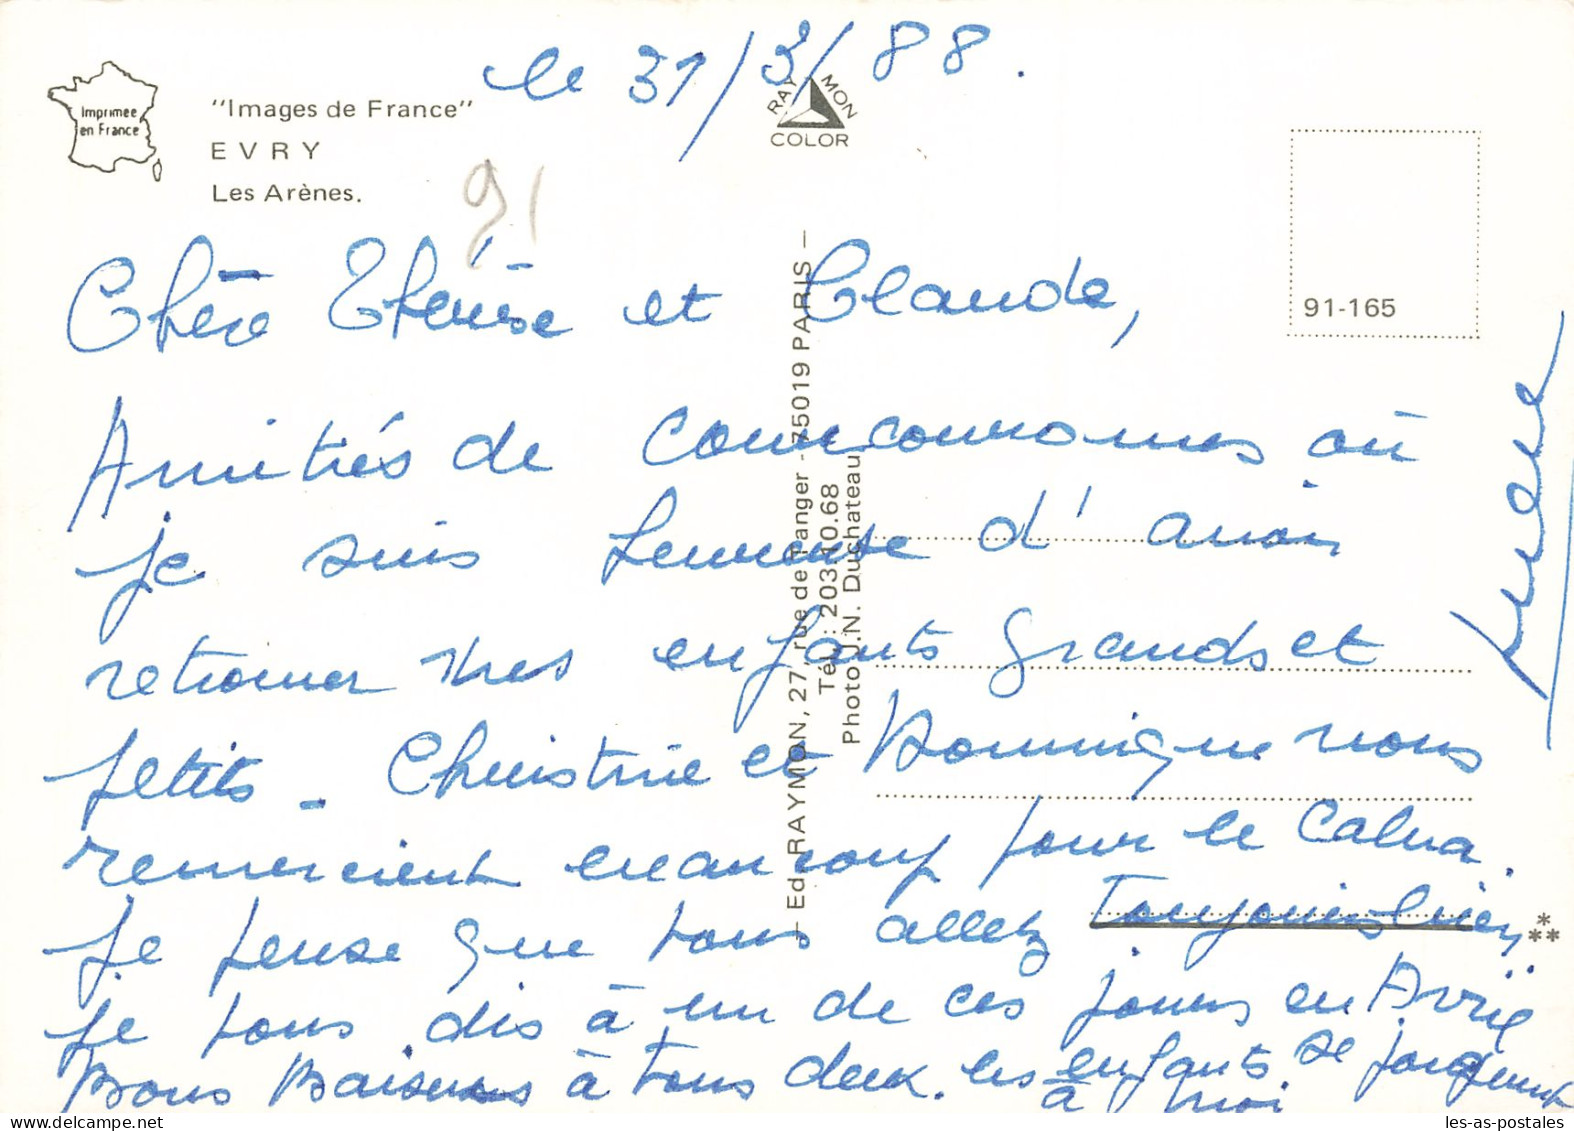 le 31/3/88.
Imprimée
en France
"Images de France"
EVRY
Les Arènes.
RAYMON
COLOR
91
91-165
Chère Thérèse et Claude,
Amitiés de Courcouronnes où
je suis heureuse d'avoir
retrouver mes enfants grands et
petits - Christine et Dominique vous
remercient beaucoup pour le Calva.
Je pense que vous allez toujours bien,
je vous dis à un de ces jours en Avril
Bons Baisers à vous deux. les enfants se joignent
à moi
Ed. RAYMON, 27, rue de Tanger - 75019 PARIS -
Tél. : 203.40.68
Photo J.N. Duchateau
les-as-postales